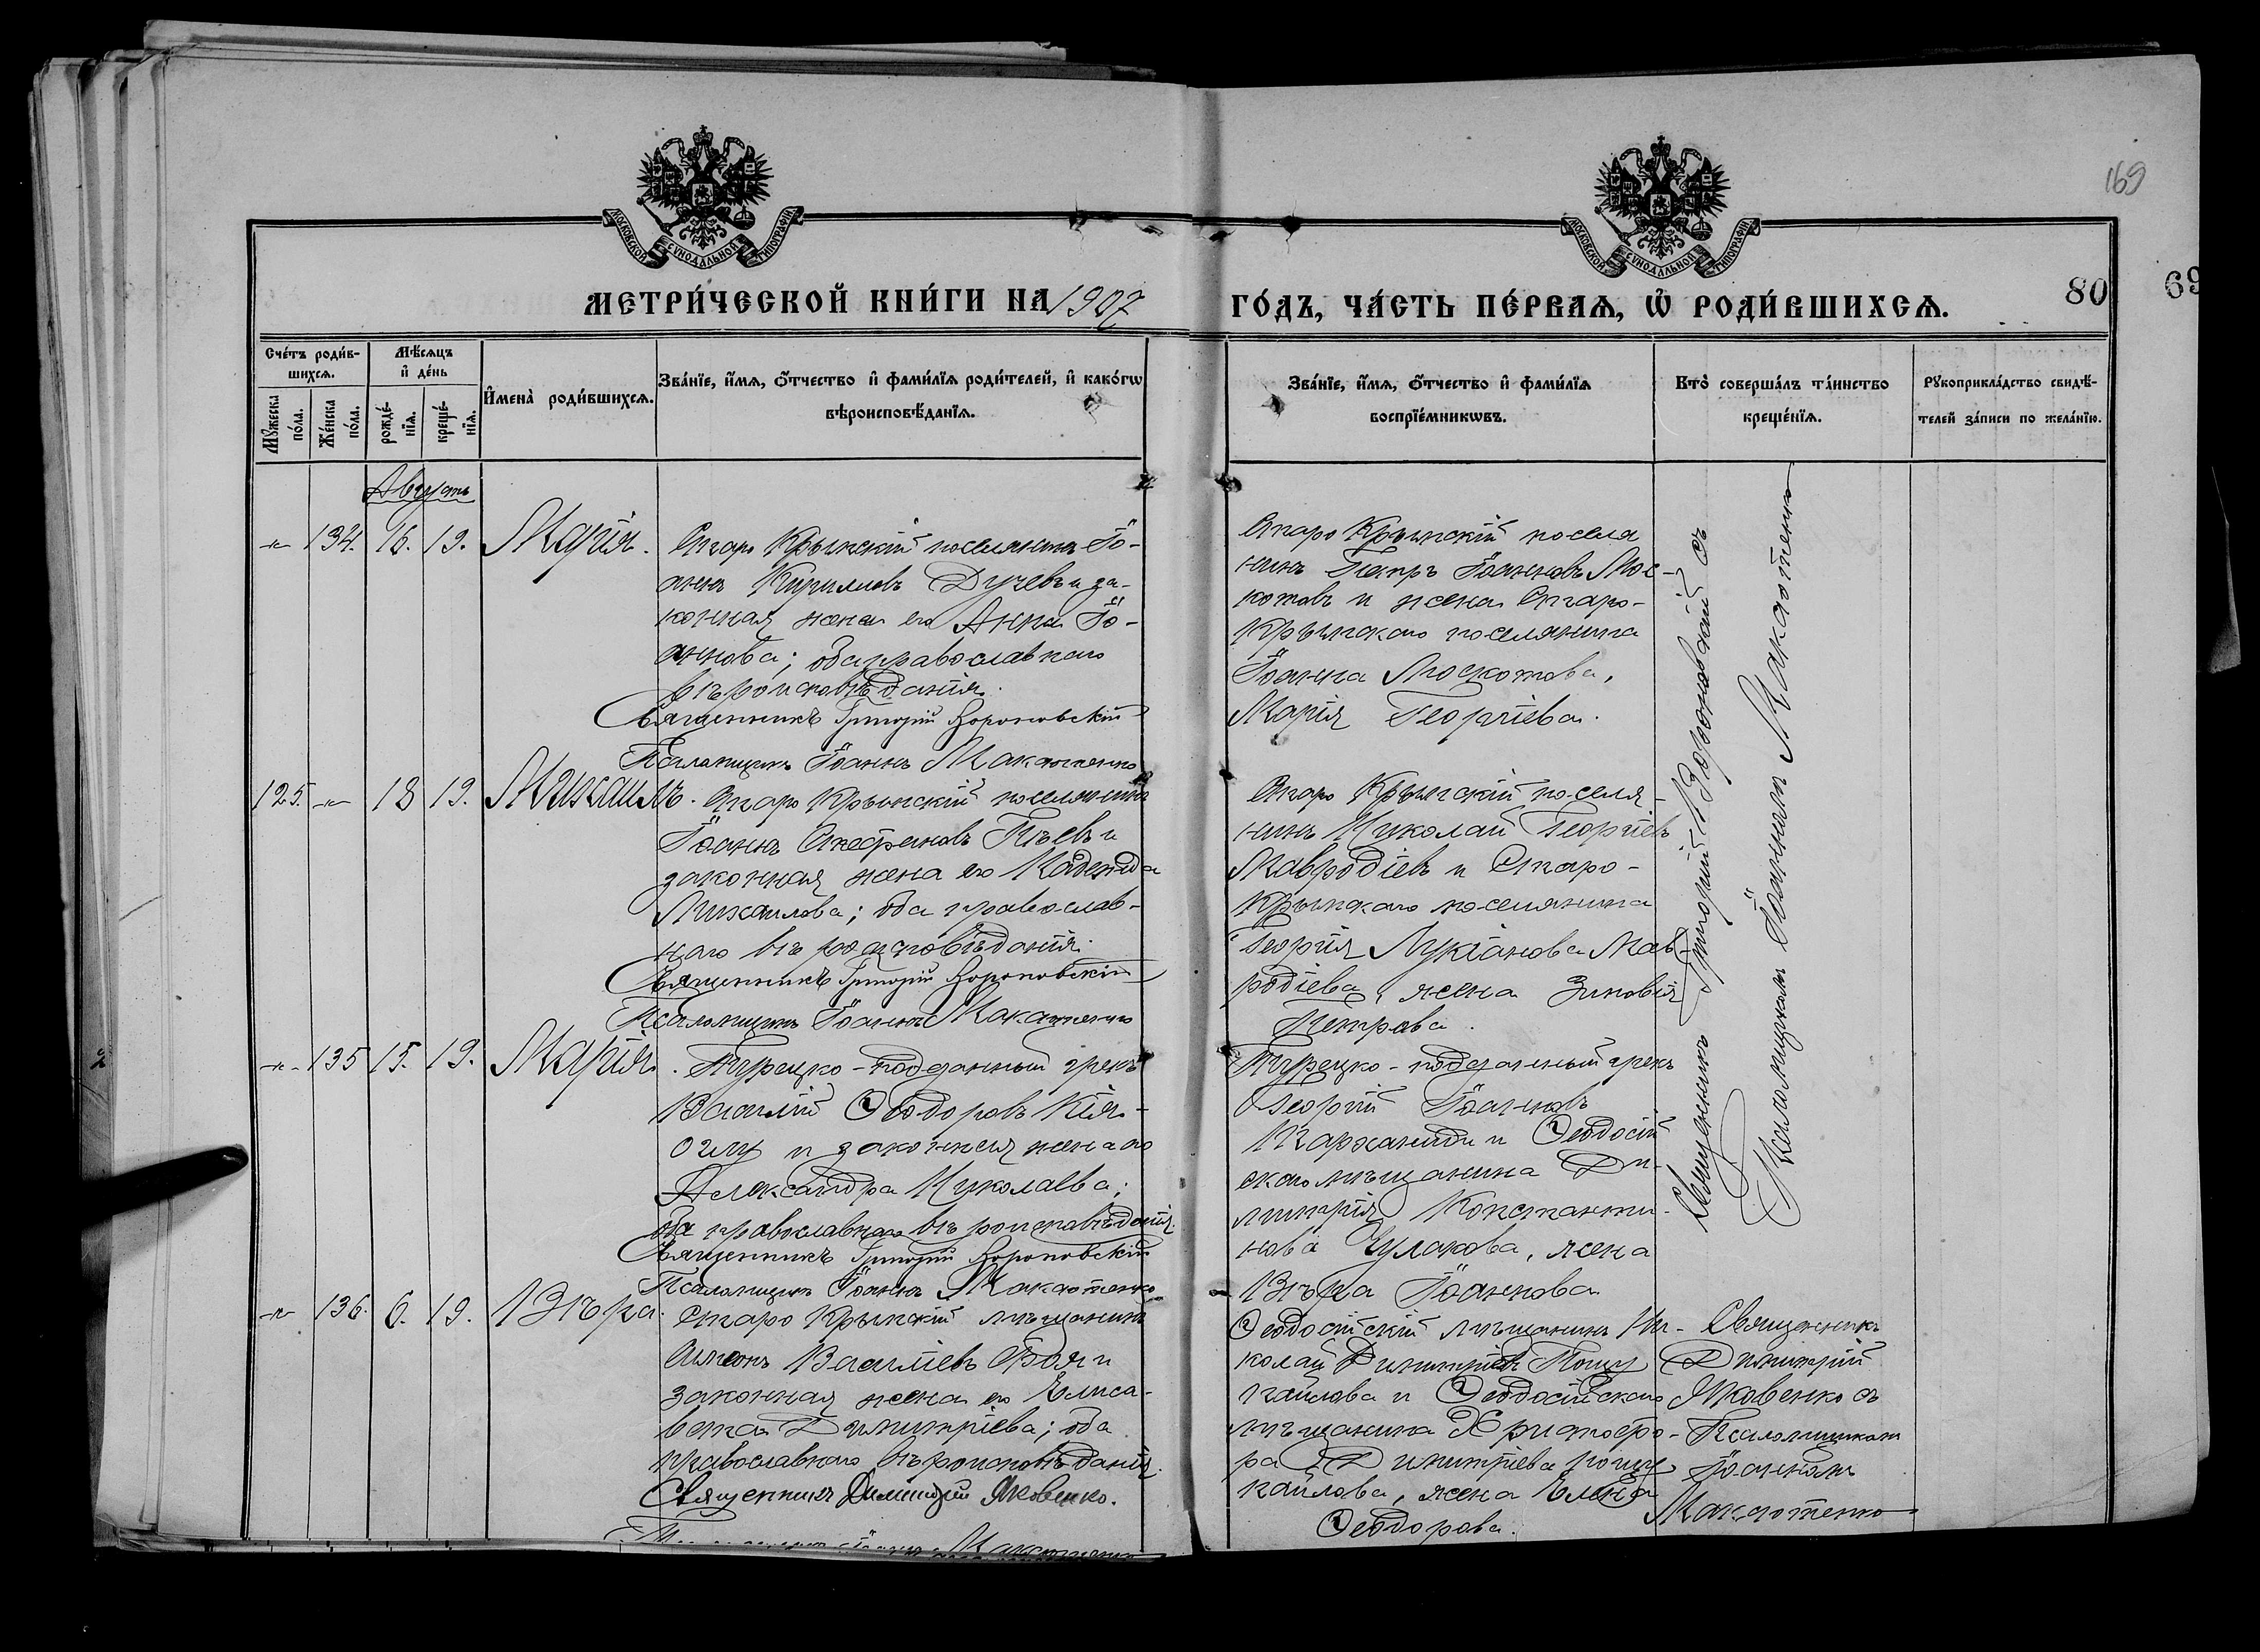 169
МОСКОВСКОЙ СѴНОДАЛЬНОЙ ТИПОГРАФІИ
МОСКОВСКОЙ СѴНОДАЛЬНОЙ ТИПОГРАФІИ
МЕТРИ́ЧЕСКОЙ КНИ́ГИ НА 1907
ГО́ДЪ, ЧА́СТЬ ПЕ́РВАѦ, Ѽ РОДИ́ВШИХСѦ.
80
69
Сче́тъ роди́в-
шихсѧ.
Мѣ́сѧцъ
и҆ де́нь
Мꙋ́жеска
по́ла.
Же́нска
по́ла.
рожде́-
нїѧ.
креще́-
нїѧ.
И҆мена̀ роди́вшихсѧ.
Зва́нїе, и҆́мѧ, ѻ҆́тчество и҆ фами́лїѧ роди́телей, и҆ како́гѡ
вѣроисповѣ́данїѧ.
Зва́нїе, и҆́мѧ, ѻ҆́тчество и҆ фами́лїѧ
воспрїе́мникѡвъ.
Кто̀ соверша́лъ та́инство
креще́нїѧ.
Рꙋкоприкла́дство свидѣ́-
телей за́писи по жела́нїю.
Августъ
-"- 134. 16. 19. Марія.
Старо Крымскій поселянинъ Іо-
аннъ Кирилловъ Дучевъ и за-
конная жена его Анна Іо-
аннова; оба православнаго
вѣроисповѣданія.
Священникъ Григорій Вороновскій
Псаломщикъ Іоаннъ Макотенко
Старо Крымскій поселя
нинъ Петръ Іоанновъ Мос-
котовъ и жена Старо-
Крымскаго поселянина
Іоанна Москотова,
Марія Георгіева.
125. -"- 18 19. Михаилъ.
Старо Крымскій поселянинъ
Іоаннъ Стефановъ и
законная жена его Надежда
Михаилова; оба православ-
наго вѣроисповѣданія.
Священникъ Григорій Вороновскій
Псаломщикъ Іоаннъ Макотенко
Старо Крымскій поселя-
нинъ Николай Георгіевъ
Мавродіевъ и Старо-
Крымскаго поселянина
Георгія Лукіанова Мав-
родіева, жена Зиновія
Петрова.
-"- 135 15. 19. Марія.
Турецко-подданный грекъ
Василій Ѳеодоровъ Кія-
оглу и законная жена его
Александра Николаева;
оба православнаго вѣроисповѣданія.
Священникъ Григорій Вороновскій
Псаломщикъ Іоаннъ Макотенко
Турецко-подданный грекъ
Георгій Іоанновъ
и Ѳеодосій
скаго мѣщанина Ди-
митрія Константи-
нова Чулакова, жена
Вѣра Іоаннова
Священникъ Григорій Вороновскій съ
Псаломщикомъ Іоанномъ Макотенко
-"- 136. 6. 19. Вѣра.
Старо Крымскій мѣщанинъ
Василіевъ и
законная жена его Елиса-
вета Димитріева; оба
православнаго вѣроисповѣданія.
Священникъ Димитрій Яковенко.
Псаломщикъ Іоаннъ Макотенко
Ѳеодосійскій мѣщанинъ Ни-
колай Димитріевъ
и Ѳеодосійскаго
мѣщанина Христофо-
ра Димитріева
жена Елена
Ѳеодорова.
Священникъ
Димитрій
Яковенко съ
Псаломщикомъ
Іоанномъ
Макотенко